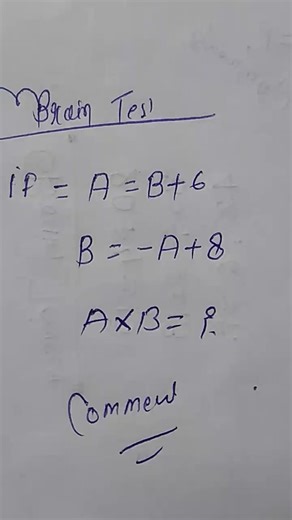 Brain Test
if = A = B+6
B = -A+8
A×B = ?
Comment